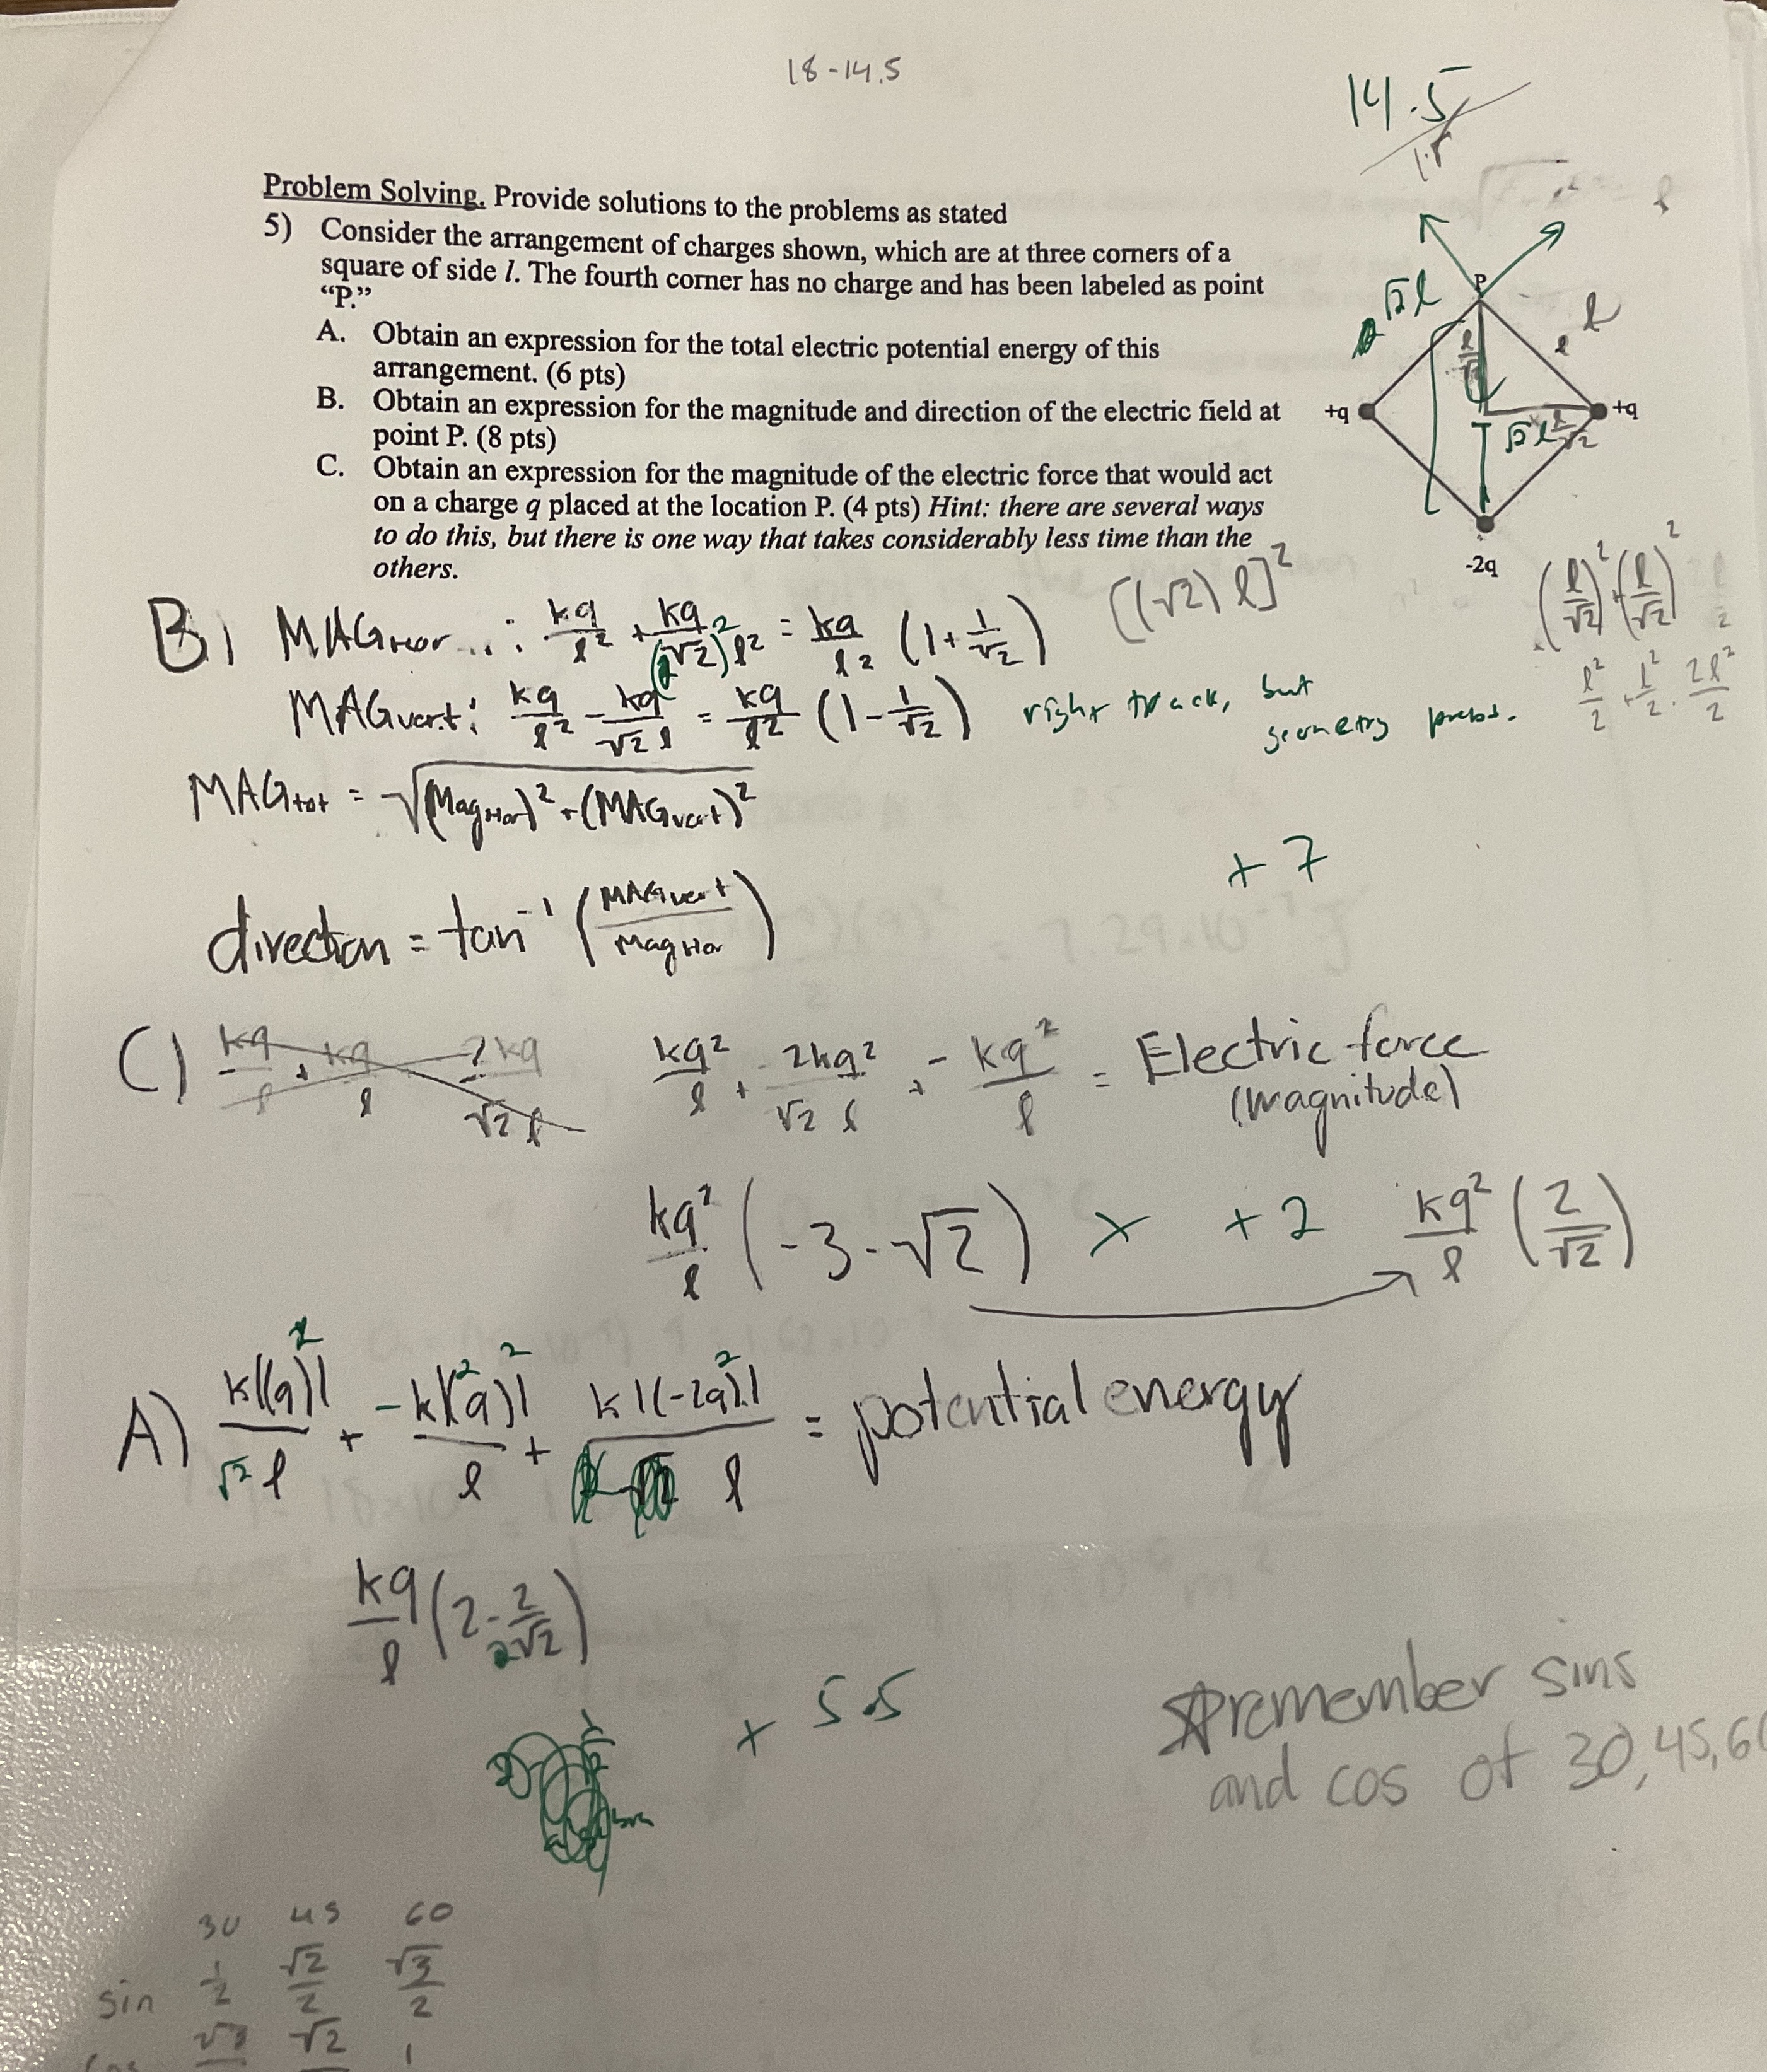 18-14.5
14.5
Problem Solving. Provide solutions to the problems as stated
5) Consider the arrangement of charges shown, which are at three corners of a
square of side l. The fourth corner has no charge and has been labeled as point
“P.”
A. Obtain an expression for the total electric potential energy of this
arrangement. (6 pts)
B. Obtain an expression for the magnitude and direction of the electric field at
point P. (8 pts)
C. Obtain an expression for the magnitude of the electric force that would act
on a charge q placed at the location P. (4 pts) Hint: there are several ways
to do this, but there is one way that takes considerably less time than the
others.
P
√2 l
l
l
+q
+q
√2 l
-2q
[(√2) l]²
(l/√2)² + (l/√2)²
l²/2 + l²/2 . 2l²/2
B) MAGHor...: kq/l² + kq/(√2)² l² = kq/l² (1 + 1/√2)
MAGvert: kq/l² - kq/√2 l = kq/l² (1 - 1/√2)
right track, but
geometry probs.
MAGtot = √(MagHor)² + (MAGvert)²
+7
direction = tan⁻¹ (MAGvert/MagHor)
C) kq/l + kq/l - 2kq/√2 l
kq²/l + - 2kq²/√2 l + - kq²/l = Electric force
(magnitude)
kq²/l (-3 - √2) x +2 kq²/l (2/√2)
A) k|(q)|²/√2 l + -k|(2q)|²/l + k|(-2q²)|/l = potential energy
kq/l (2 - 2/2√2)
+ 5.5
remember sins
and cos of 30, 45, 60
30 45 60
sin 1/2 √2/2 √3/2
cos √3 √2 1